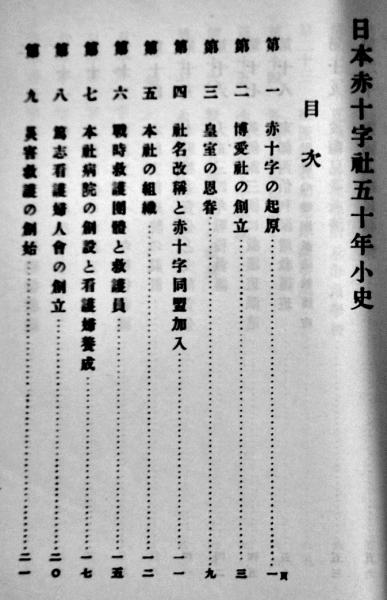 日本赤十字社五十年小史
目次
第一 赤十字の起原……一頁
第二 博愛社の創立……三
第三 皇室の恩眷……九
第四 社名改稱と赤十字同盟加入……一一
第五 本社の組織……一二
第六 戰時救護團體と救護員……一五
第七 本社病院の創設と看護婦養成……一七
第八 篤志看護婦人會の創立……二〇
第九 災害救護の創始……二一